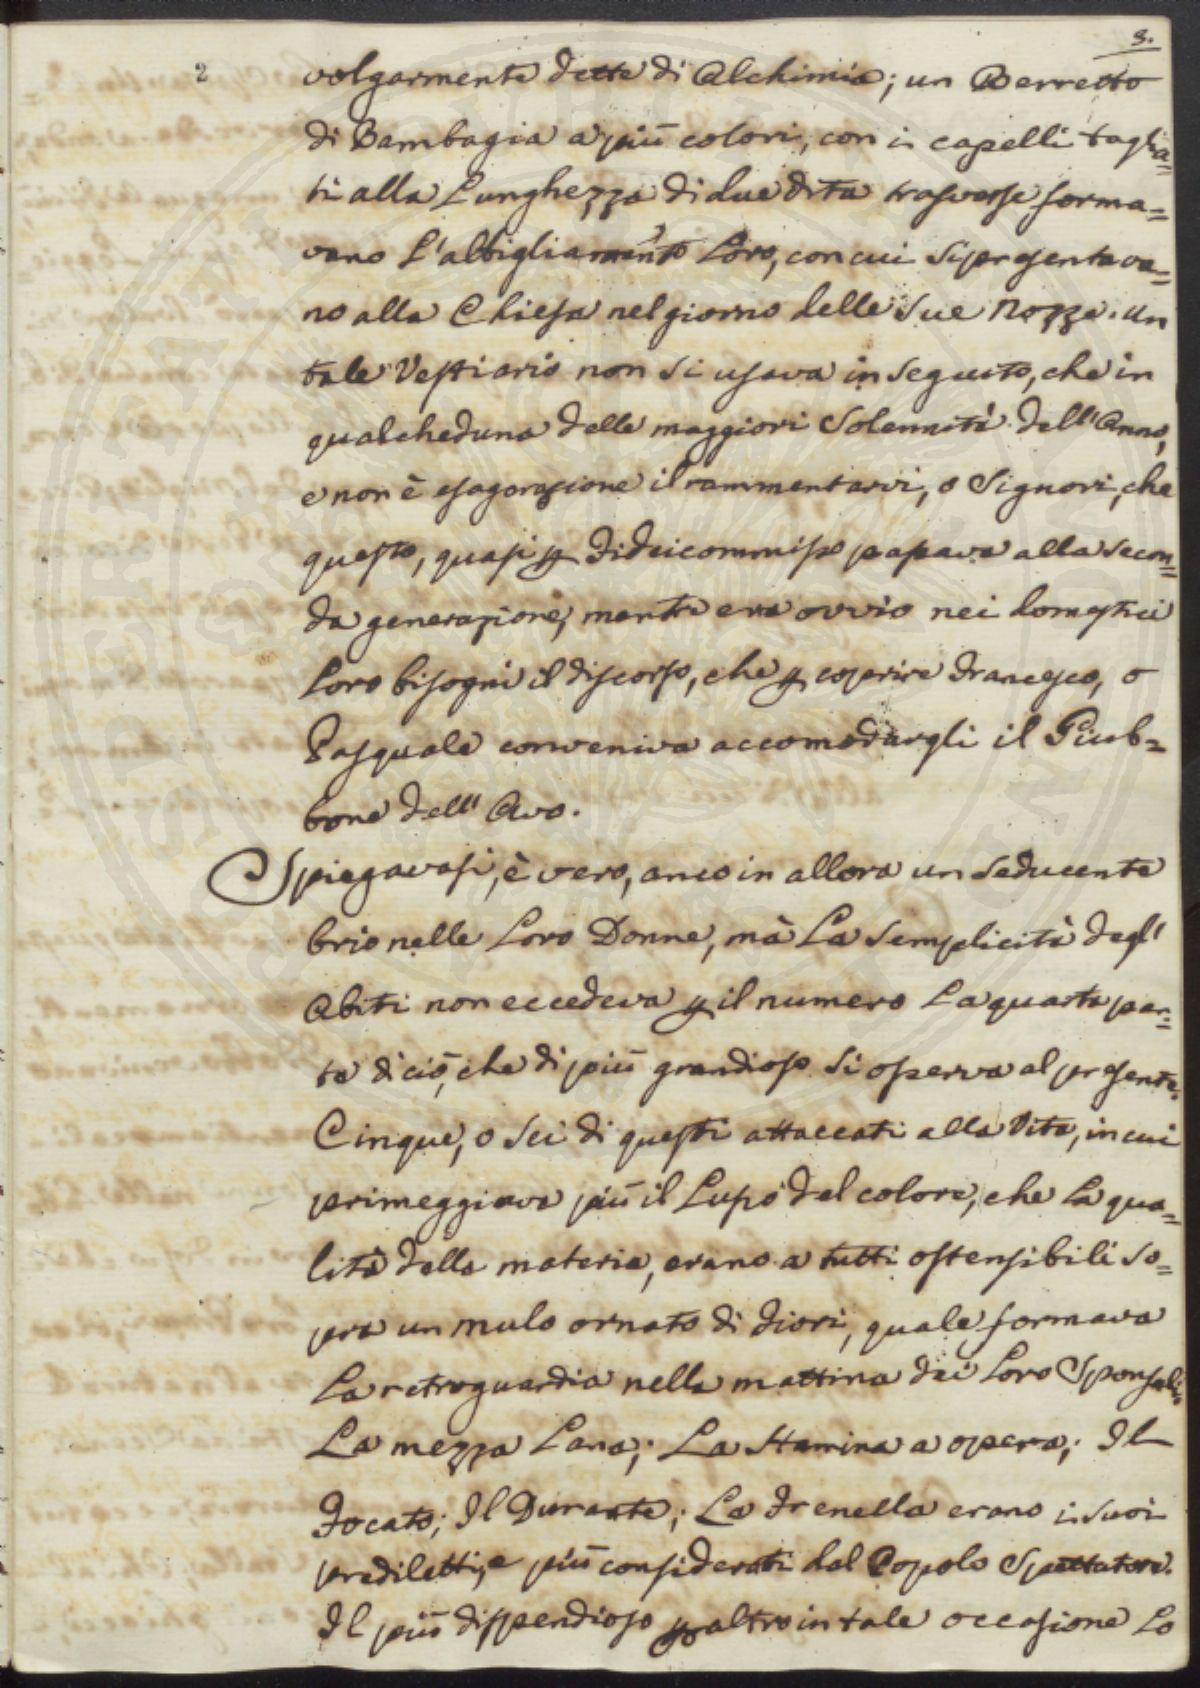 3.
2
volgarmente dette di Alchimia; un Berretto
di Bambagia a più colori, con i capelli taglia=
ti alla Lunghezza di due dita trasverse forma=
vano L'abbigliamento Loro, con cui si presentava=
no alla Chiesa nel giorno delle Sue Nozze. Un
tale Vestiario non si usava in Seguito, che in
qualcheduna delle maggiori Solennità dell'Anno,
e non è esagerazione il rammentarvi, o Signori, che
questo, quasi p Fideicommisso passava alla Secon=
da generazione, mentre era ovvio nei domestici
Loro bisogni il discorso, che p coprire Francesco, o
Pasquale conveniva accomodargli il Giub=
bone dell'Avo.
Spiegavasi, è vero, anco in allora un Seducente
brio nelle Loro Donne, mà La Semplicità degl'
Abiti non eccedeva p il numero La quarta par=
te di ciò, che di più grandioso Si osserva al presente.
Cinque, o Sei di questi attaccati alla Vita, in cui
primeggiava più il Lupo del colore, che La qua=
lità della materia, erano a tutti ostensibili So=
pra un Mulo ornato di Fiori, quale formava
La retroguardia nella mattina dei Loro Sponsali.
La mezza Lana; La Stamina a opera; Il
Focato; Il Durante; La Frenella erano i Suoi
prediletti, e più considerati dal Popolo Spettatore.
Il più dispendioso p altro in tale occasione Lo